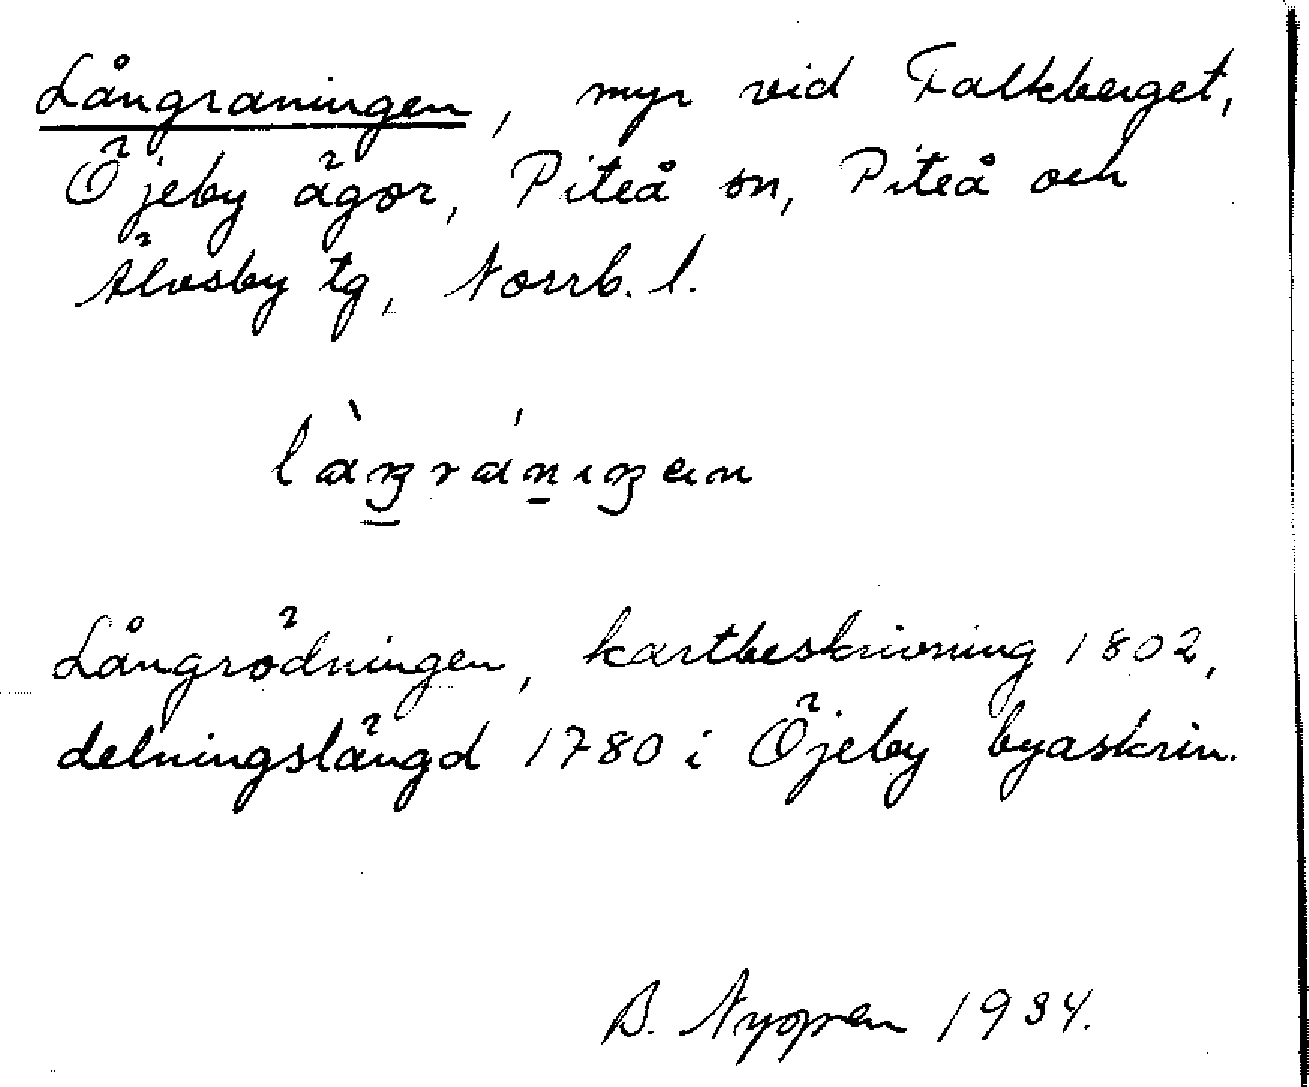 Långraningen, myr vid Falkberget,
Öjeby ägor, Piteå sn, Piteå och
Älvsby tg, Norrb. l.
làŋrániŋen
Långrödningen, kartbeskrivning 1802,
delningslängd 1780 i Öjeby byaskrin.
B. Nyopen 1934.